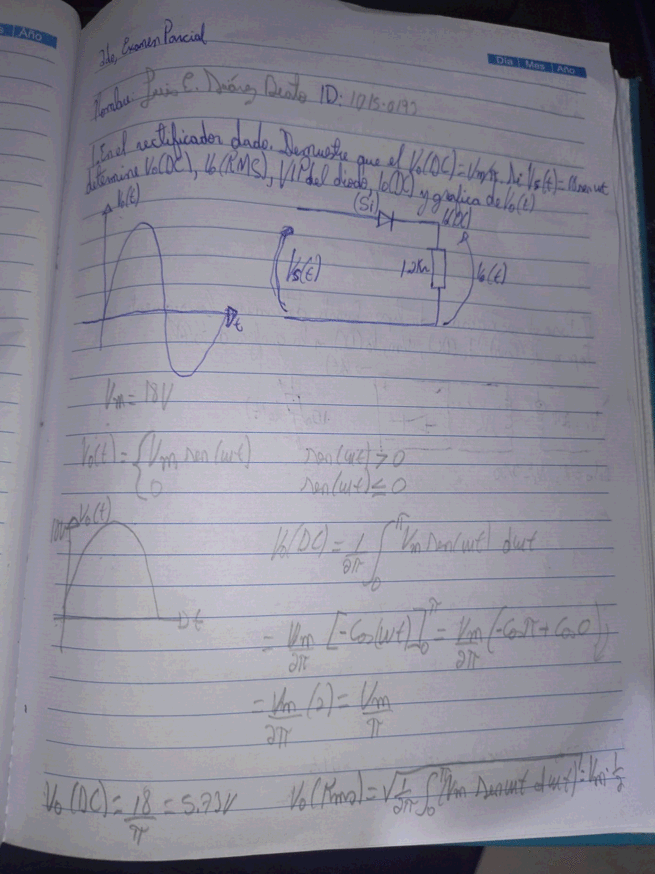 Año
Día | Mes | Año
2do, Examen Parcial
Nombre: Luis C. ID: 1015-0192
1. En el rectificador dado. Demuestre que el Vo(DC)=Vm/π. Si Vs(t)=18 sen wt
determine Vo(DC), Vo(RMS), VIP del diodo, Io(DC) y grafica de Vo(t)
(Si)
Vs(t)
1.2KΩ
Vo(t)
t
Vm = 18V
Vo(t) = { Vm sen(wt) sen(wt) > 0
0 sen(wt) ≤ 0
Vo(t)
t
Vo(DC) = 1/2π ∫₀^π Vm sen(wt) dwt
= Vm/2π [-Cos(wt)]₀^π = Vm/2π (-Cosπ + Cos0)
= Vm/2π (2) = Vm/π
Vo(DC) = 18/π = 5.73V
Vo(Rms) = √(1/2π ∫₀^π (Vm sen wt dwt)² = Vm · 1/2